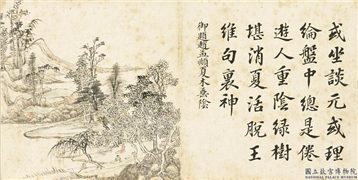 或坐談元或理
綸盤中總是倦
遊人重陰綠樹
堪消夏活脫王
維句裏神
御題趙孟頫夏木垂陰
國立故宮博物院
NATIONAL PALACE MUSEUM